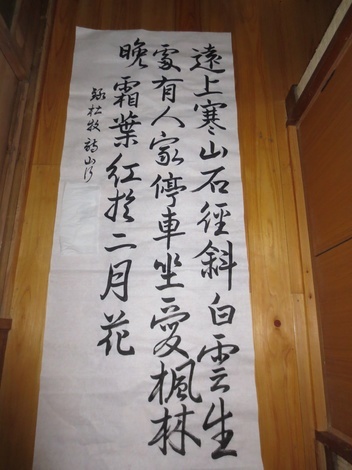 遠上寒山石徑斜白雲生
處有人家停車坐愛楓林
晩霜葉紅於二月花
録杜牧詩山行